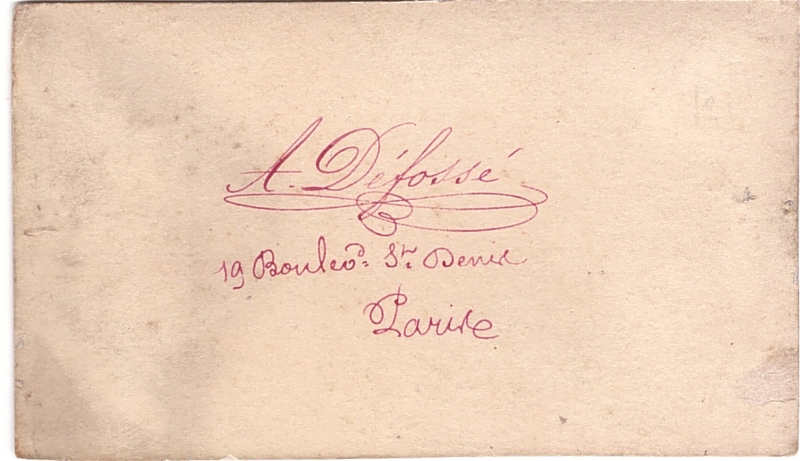 A. Défossé
19 Boulevd. St. Denis
Paris